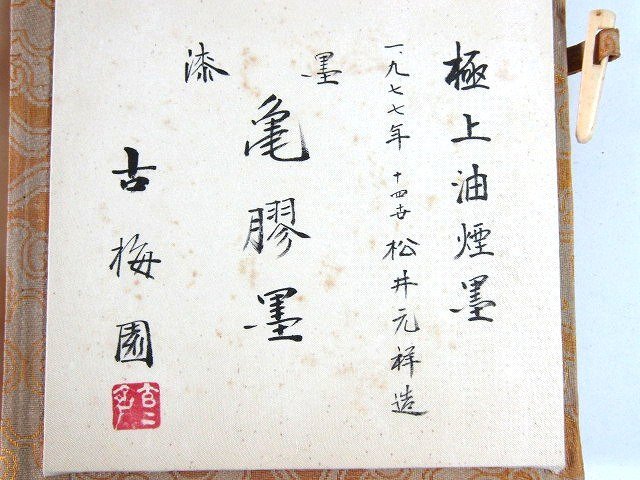 極上油煙墨
一九七七年 十四世 松井元祥造
墨
亀膠墨
漆
古梅園